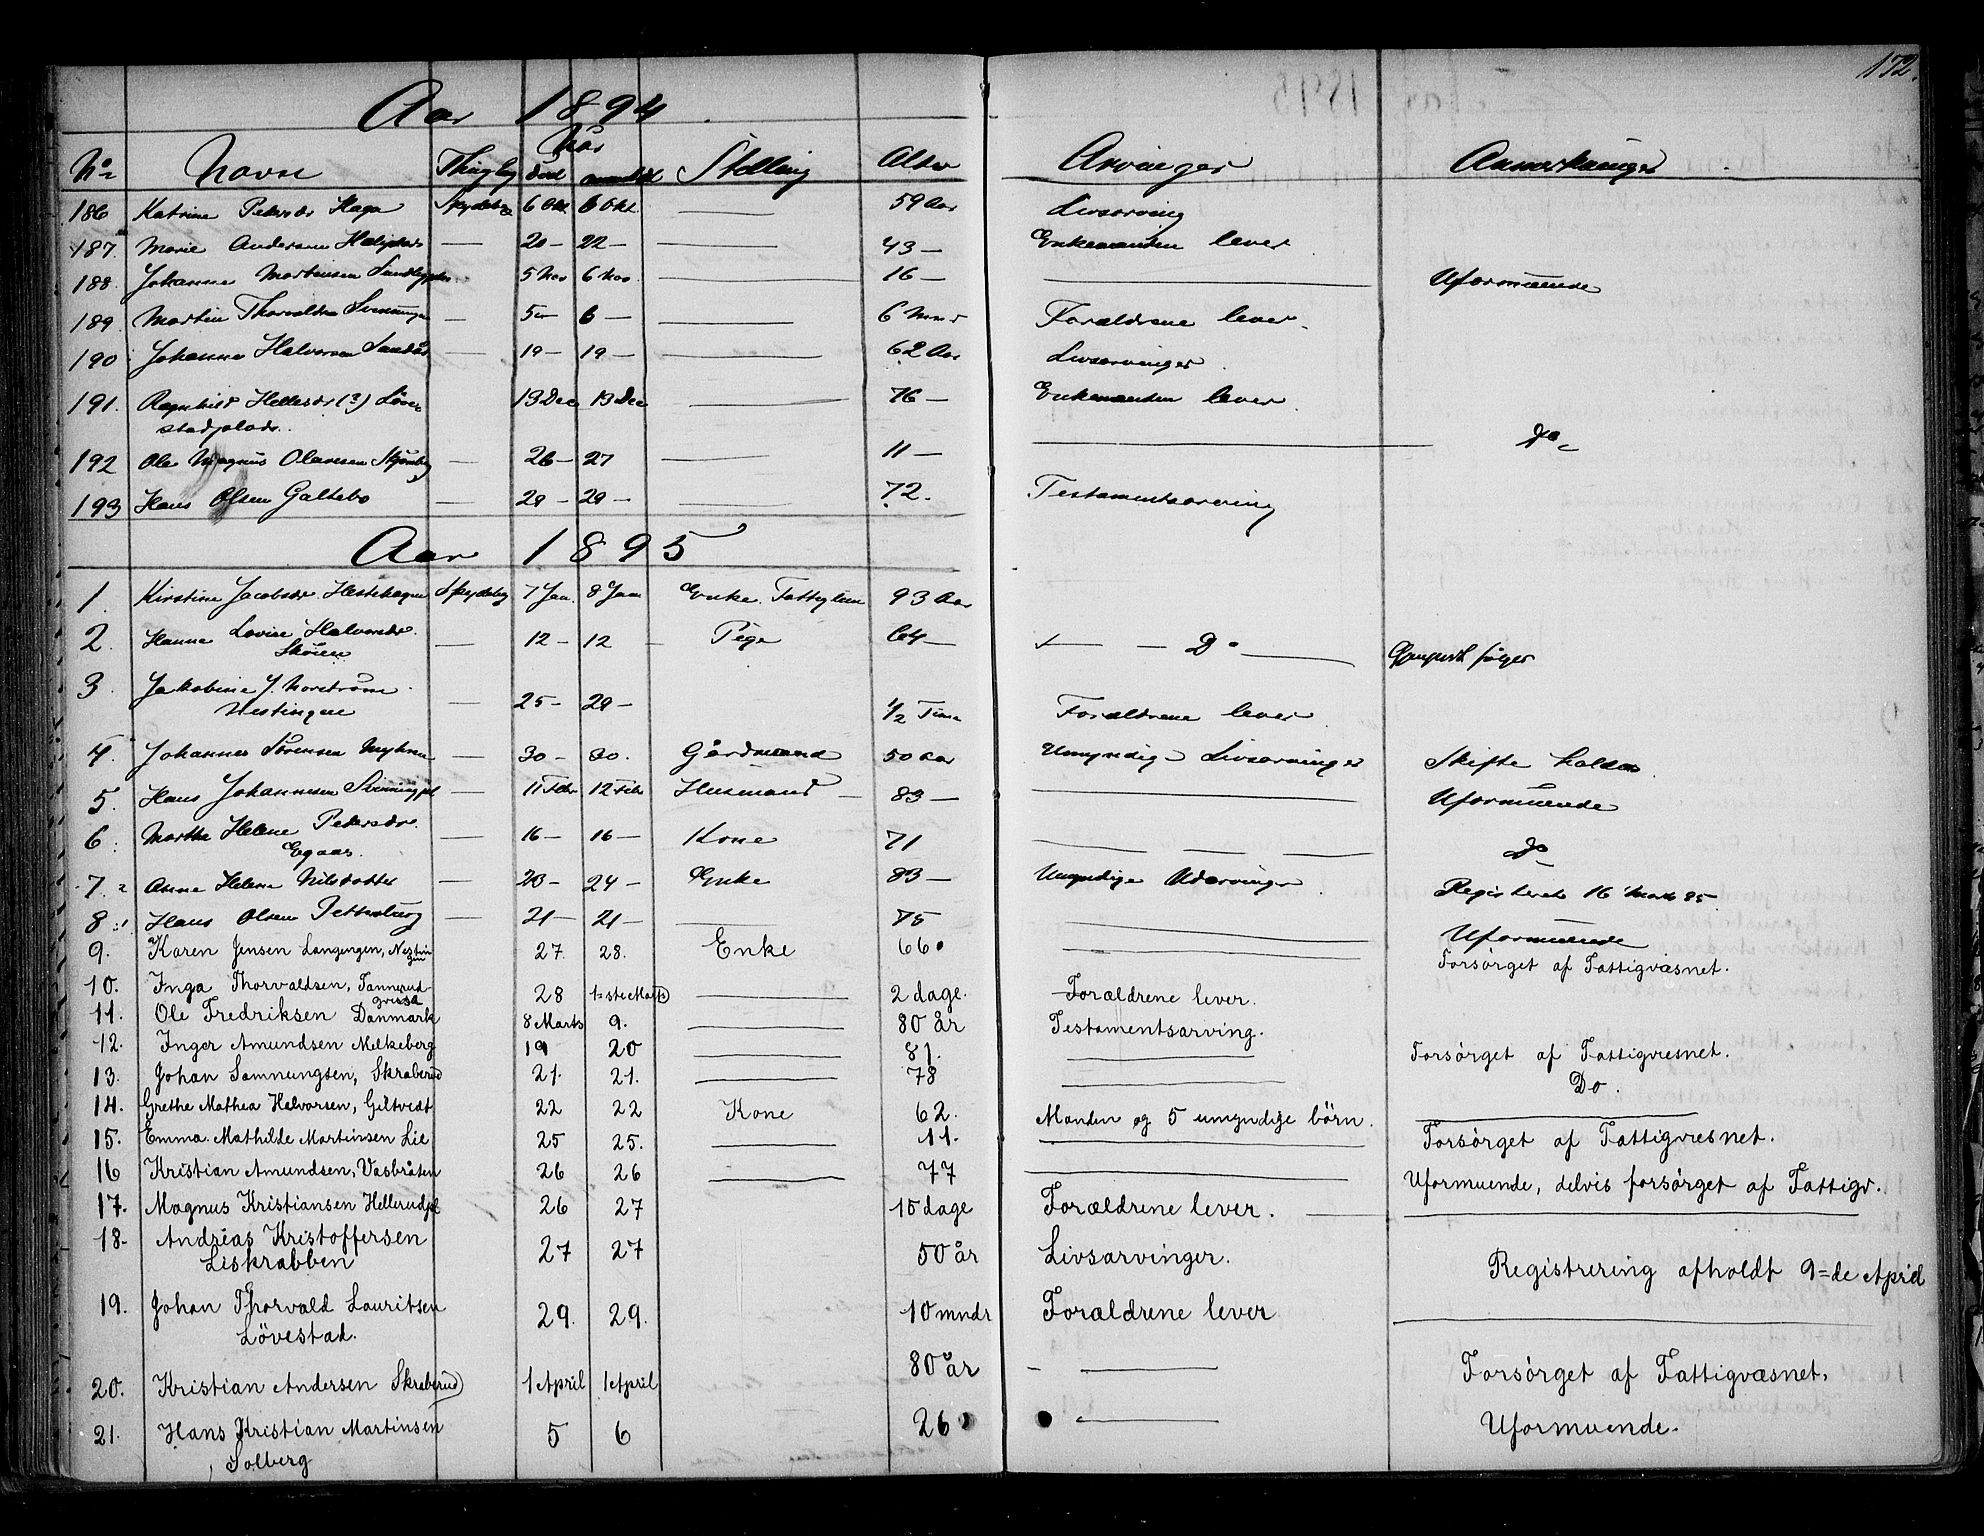 172.
Aar 1894
Naar
No Navn Thinglag død anmeldt Stilling Alder Arvinger Anmerkninger
186 Katrine Pedersdr Haga Spydeberg 6 Okt. 6 Okt. — 59 Aar Livsarving
187. Marie Andersen — 20 — 22 — — 43 — Enkemanden lever
188. Johanne Martinsen — 5 Nov 6 Nov. — 16 — — Uformuende
189. Martin Thorvaldsen — 5 — 6 — — 6 Mndr Forældrene lever.
190 Johannes Halvorsen Sandås — 19 — 19 — — 62 Aar Livsarvinger.
191. Ragnhild Hellesdr (?) Løve- 13 Dec 13 Dec — 76 — Enkemanden lever.
stadplads.
192 Ole Magnus Olavesen — 26 — 27 — 11 — — Do
193 Hans Olsen Galtebo — 29 — 29 — — 72. Testamentsarving
Aar 1895
1. Kirstine Jacobsdr. Hestehagen Spydeberg 7 Jan. 8 Jan Enke. Fattiglem 93 Aar
2. Hanna Lovise Halvorsdr. — 12 — 12 — Pige 64 — — Do —
Skøien
3. Jakobine J. Norstrøm — 25 — 29 — 1/2 Time Forældrene lever.
4. Johannes Sørensen Myhrer — 30 — 30. Gårdmand 50 Aar Umyndige Livsarvinger Skifte holdes.
5. Hans Johannesen — 11 Feb. 12 Feb. Husmand — 83 — — Uformuende
6. Martha Helene Pedersdr. — 16 — 16 — Kone 71 — Do
7. Anne Helene Nilsdatter — 23 — 24 — Enke 83 — Umyndige Udarvinger. Registreret 16 Marts 95
8. Hans Olsen Pettersborg — 21 — 21 — — 75 — Uformuende
9. Karen Jensen Langengen, 27. 28. Enke 66. — Forsørget af Fattigvæsnet.
10. Inga Thorvaldsen, 28 1=ste Marts — 2 dage. Forældrene lever.
11. Ole Fredriksen Danmark 8 Marts 9. — 80 år Testamentsarving.
12. Inger Amundsen Melkeberg 19 20 — 81. — Forsørget af Fattigvæsnet.
13. Johan Samnungsen, Skraberud 21. 21. — 78 — Do.
14. Grethe Mathea Halvorsen, Giltvedt 22 22 Kone 62. Manden og 5 umyndige börn. —
15. Emma Mathilde Martinsen Lie 25 25. — 11. — Forsørget af Fattigvæsnet.
16 Kristian Amundsen, Vasbråten 26 26 — 77 — Uformuende, delvis forsørget af Fattigv.
17. Magnus Kristiansen Hellerudpl 26 27 15 dage Forældrene lever. —
18. Andreas Kristoffersen 27 27 50 år Livsarvinger. Registrering afholdt 9=de April
Liskrabben
19. Johan Thorvald Lauritsen 29. 29. 10 mndr Forældrene lever —
Lövestad.
20. Kristian Andersen Skraberud 1 April 1 April 80 år — Forsørget af Fattigvæsnet.
21. Hans Kristian Martinsen 5 6 26 — Uformuende.
Solberg